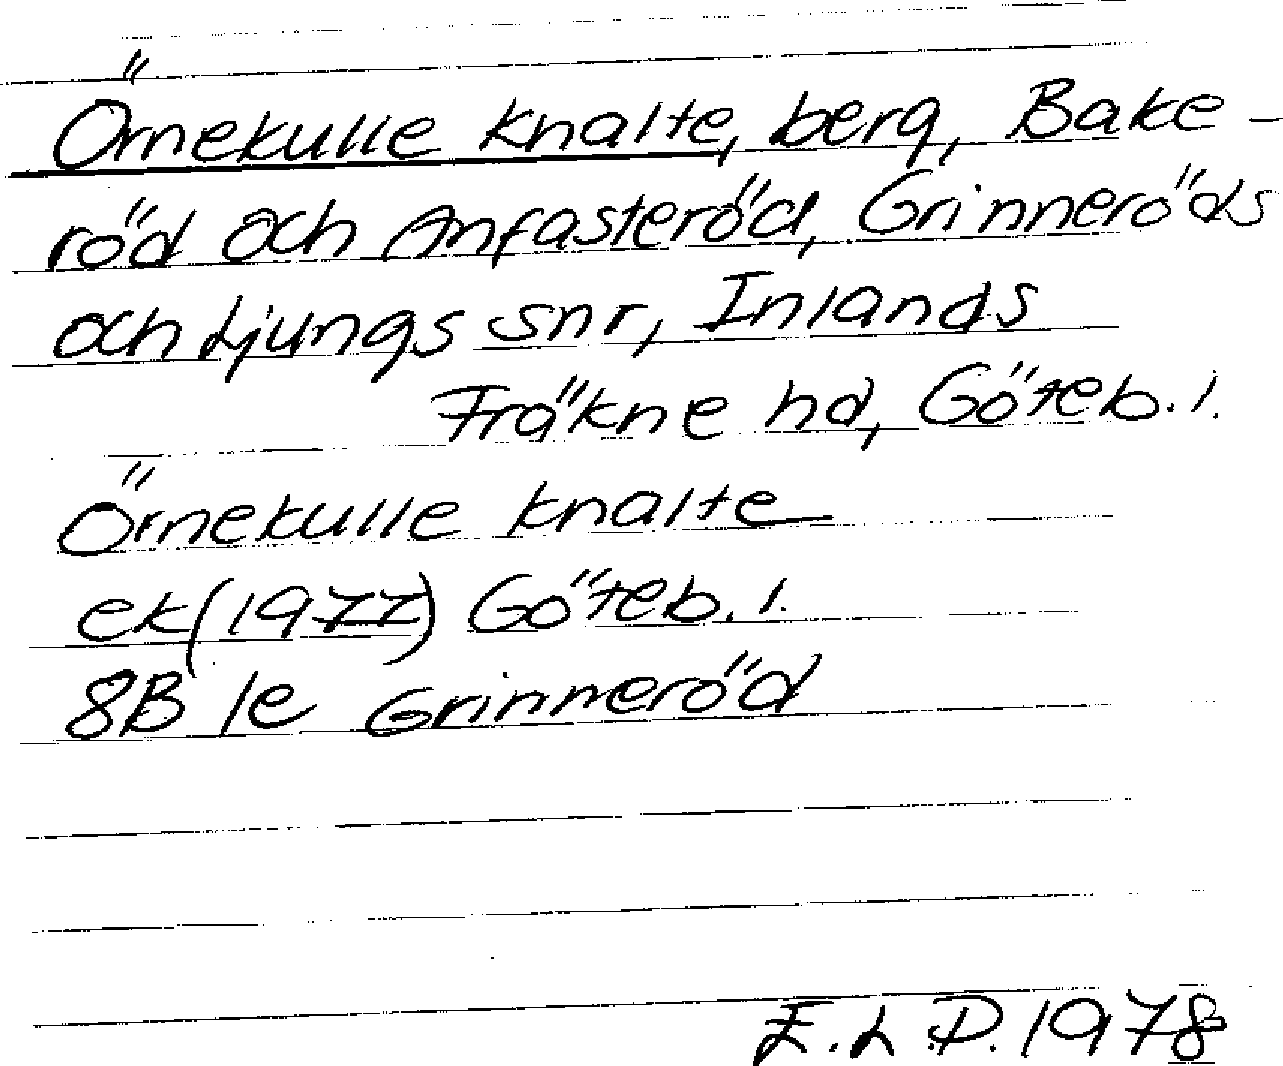 Örnekulle knalte, berg, Bake-
röd och Anfasteröd, Grinneröds
och Ljungs snr, Inlands
Fräkne hd, Göteb. l.
Örnekulle knalte
ek (1977) Göteb. l.
8B 1e Grinneröd
E.L.D. 1978